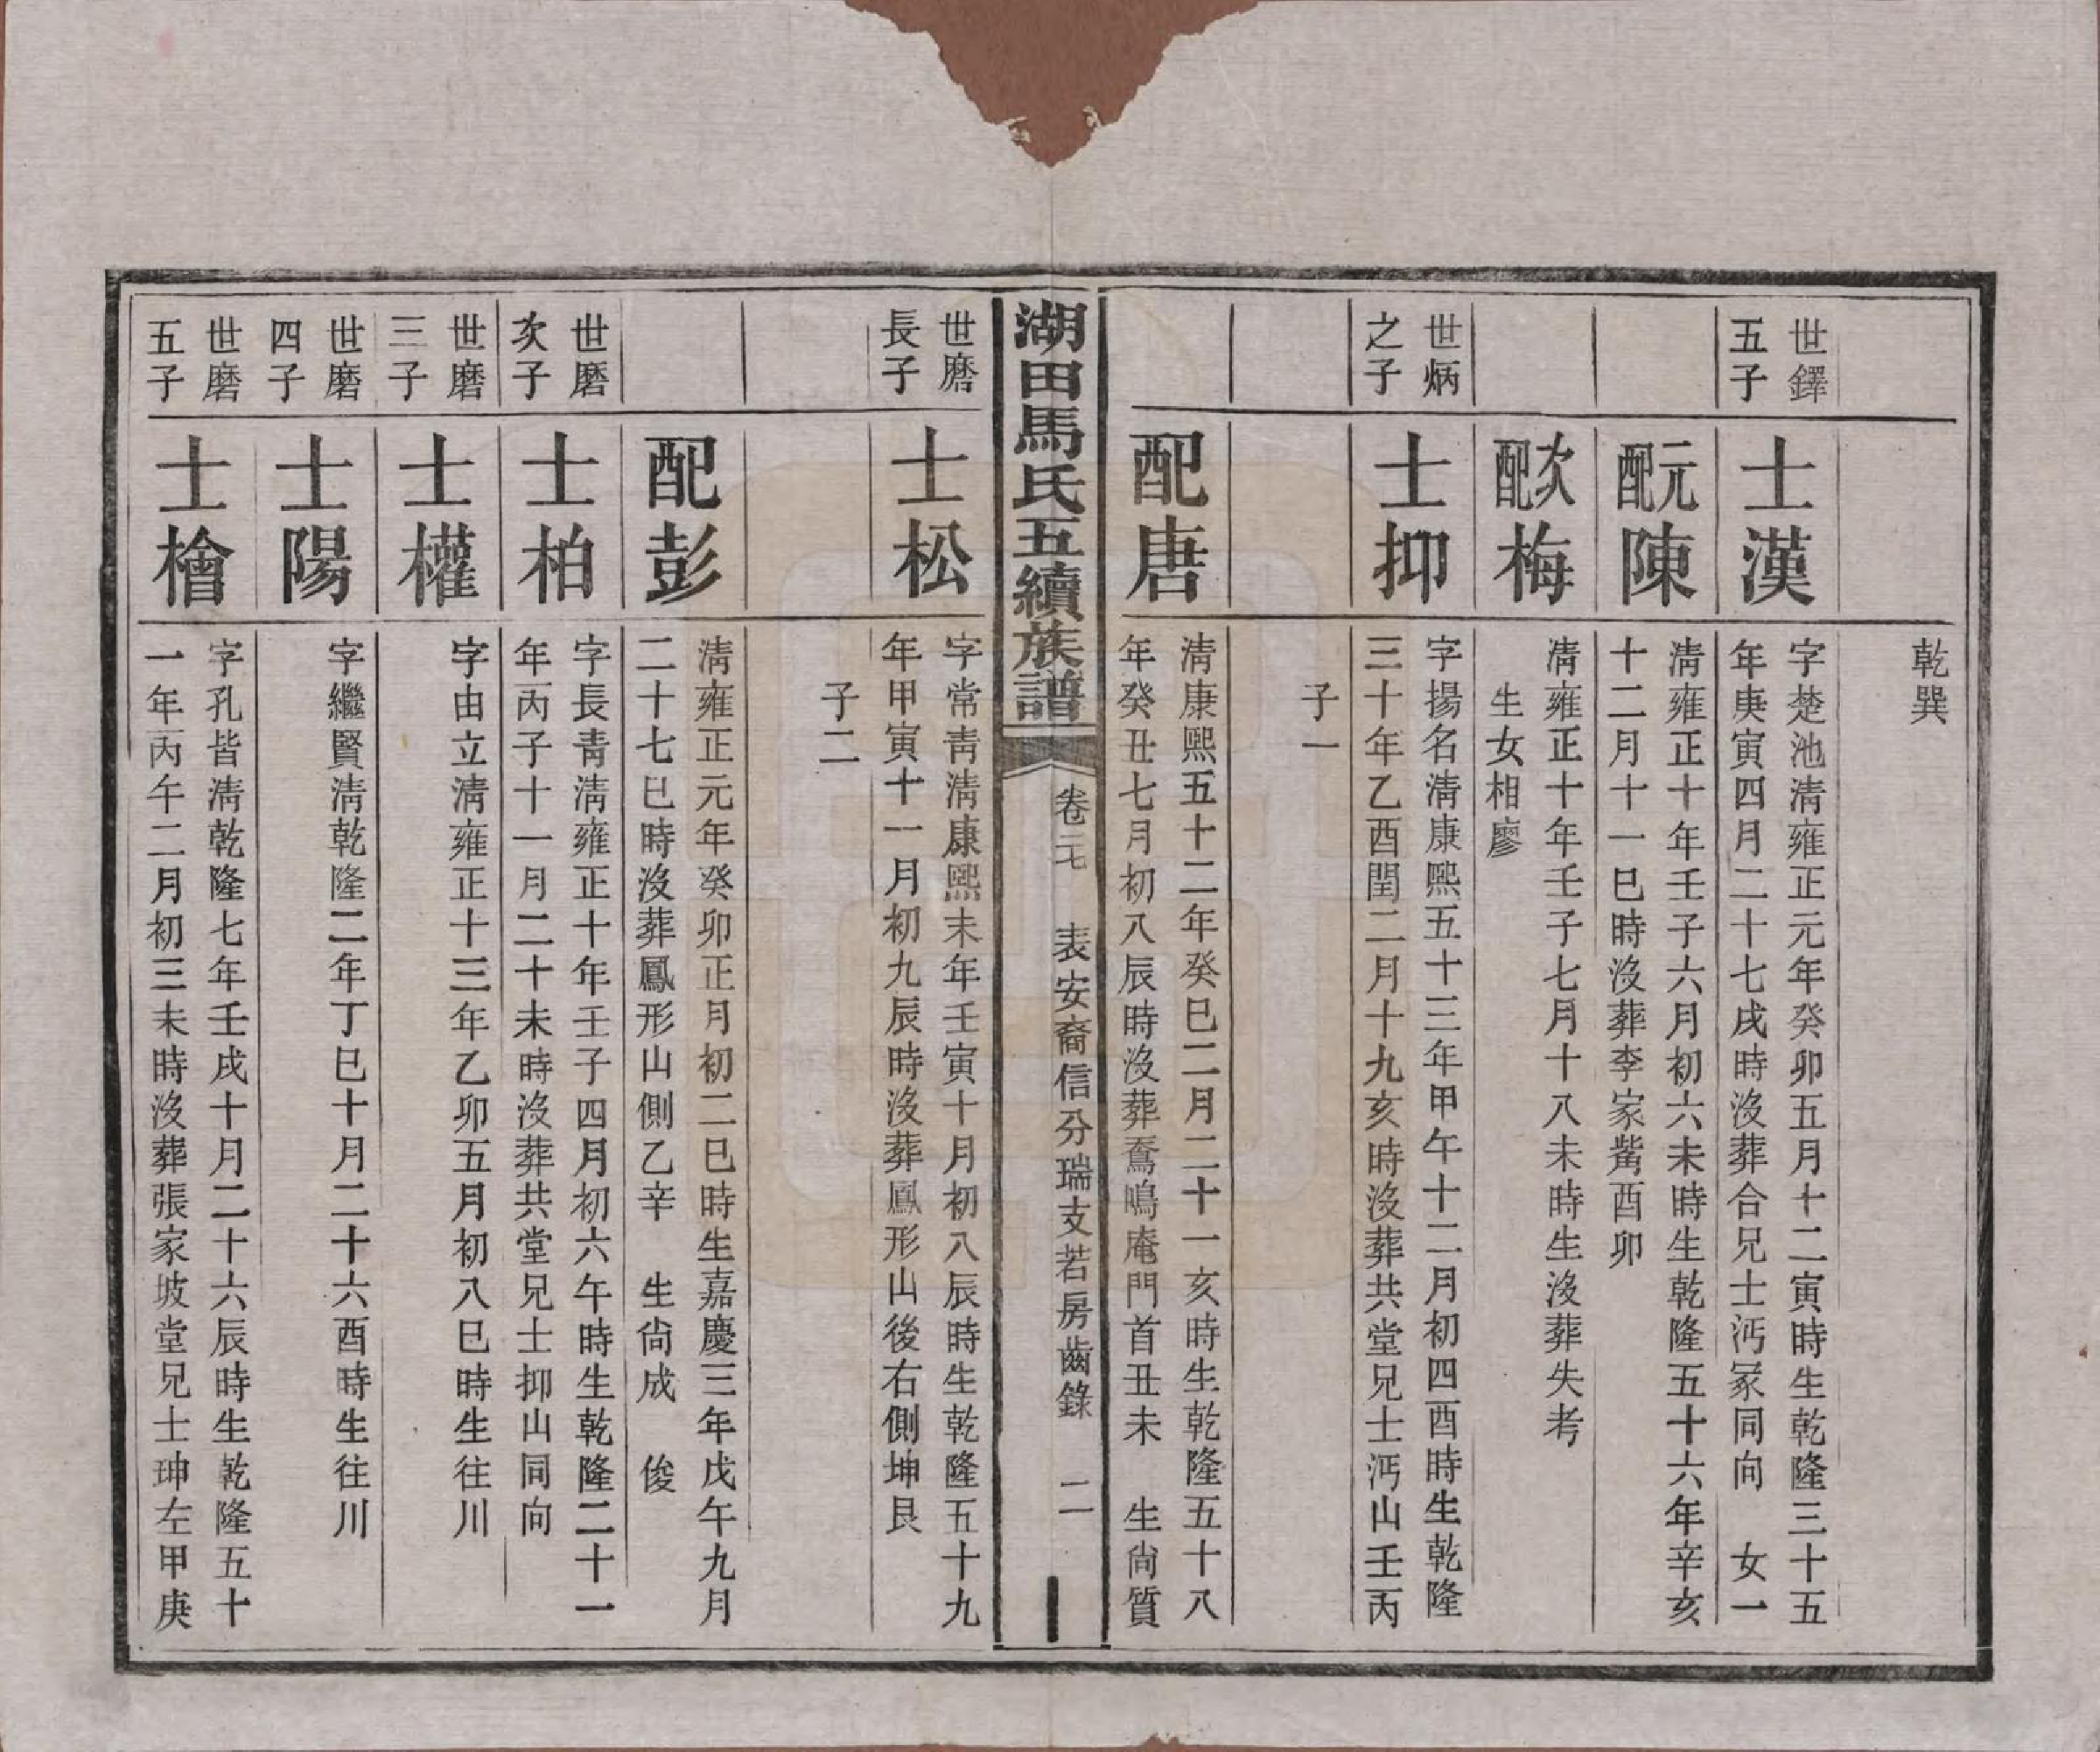 乾巽
世鐸
五子
士漢
字楚池清雍正元年癸卯五月十二寅時生乾隆三十五
年庚寅四月二十七戌時沒葬合兄士沔冢同向　女一
元配陳
清雍正十年壬子六月初六未時生乾隆五十六年辛亥
十二月十一巳時沒葬李家嘴酉卯
次配梅
清雍正十年壬子七月十八未時生沒葬失考
生女相廖
世炳
之子
士抑
字揚名清康熙五十三年甲午十二月初四酉時生乾隆
三十年乙酉閏二月十九亥時沒葬共堂兄士沔山壬丙
子一
配唐
清康熙五十二年癸巳二月二十一亥時生乾隆五十八
年癸丑七月初八辰時沒葬鴌鳴庵門首丑未　生尚質
湖田馬氏五續族譜
卷二七　表安裔信分瑞支若房齒錄　二
世磨
長子
士松
字常青清康熙末年壬寅十月初八辰時生乾隆五十九
年甲寅十一月初九辰時沒葬鳳形山後右側坤艮
子二
配彭
清雍正元年癸卯正月初二巳時生嘉慶三年戊午九月
二十七巳時沒葬鳳形山側乙辛　生尚成　俊
世磨
次子
士柏
字長青清雍正十年壬子四月初六午時生乾隆二十一
年丙子十一月二十未時沒葬共堂兄士抑山同向
世磨
三子
士權
字由立清雍正十三年乙卯五月初八巳時生往川
世磨
四子
士陽
字繼賢清乾隆二年丁巳十月二十六酉時生往川
世磨
五子
士檜
字孔皆清乾隆七年壬戌十月二十六辰時生乾隆五十
一年丙午二月初三未時沒葬張家坡堂兄士珅左甲庚